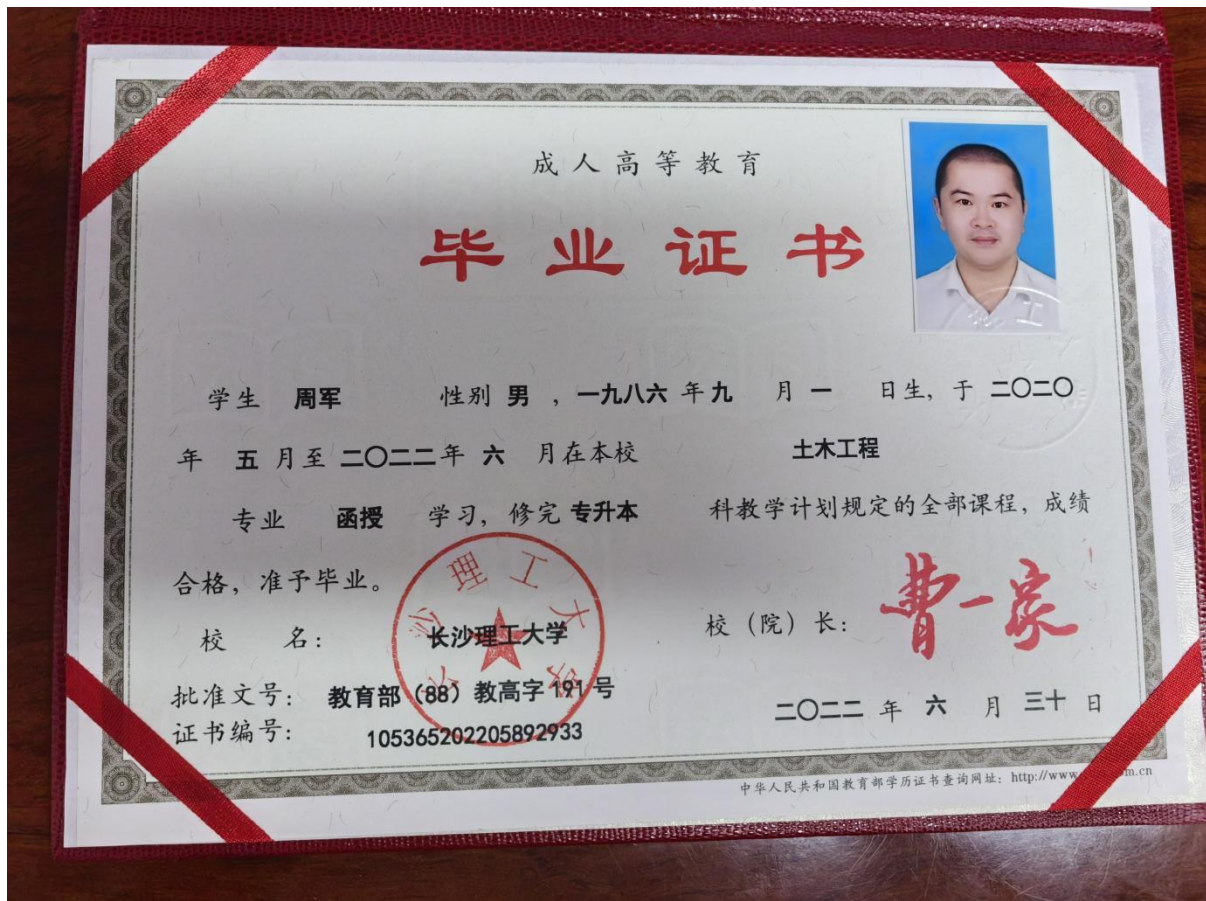 成人高等教育
毕业证书
学生 周军 性别 男 ，一九八六 年 九 月 一 日生，于 二〇二〇
年 五 月至 二〇二二 年 六 月在本校 土木工程
专业 函授 学习，修完 专升本 科教学计划规定的全部课程，成绩
合格，准予毕业。
校 名： 长沙理工大学
校（院）长： 曹一家
批准文号： 教育部（88）教高字 191 号
证书编号： 105365202205892933
二〇二二 年 六 月 三十 日
长沙理工大学
中华人民共和国教育部学历证书查询网址：http://www. m.cn